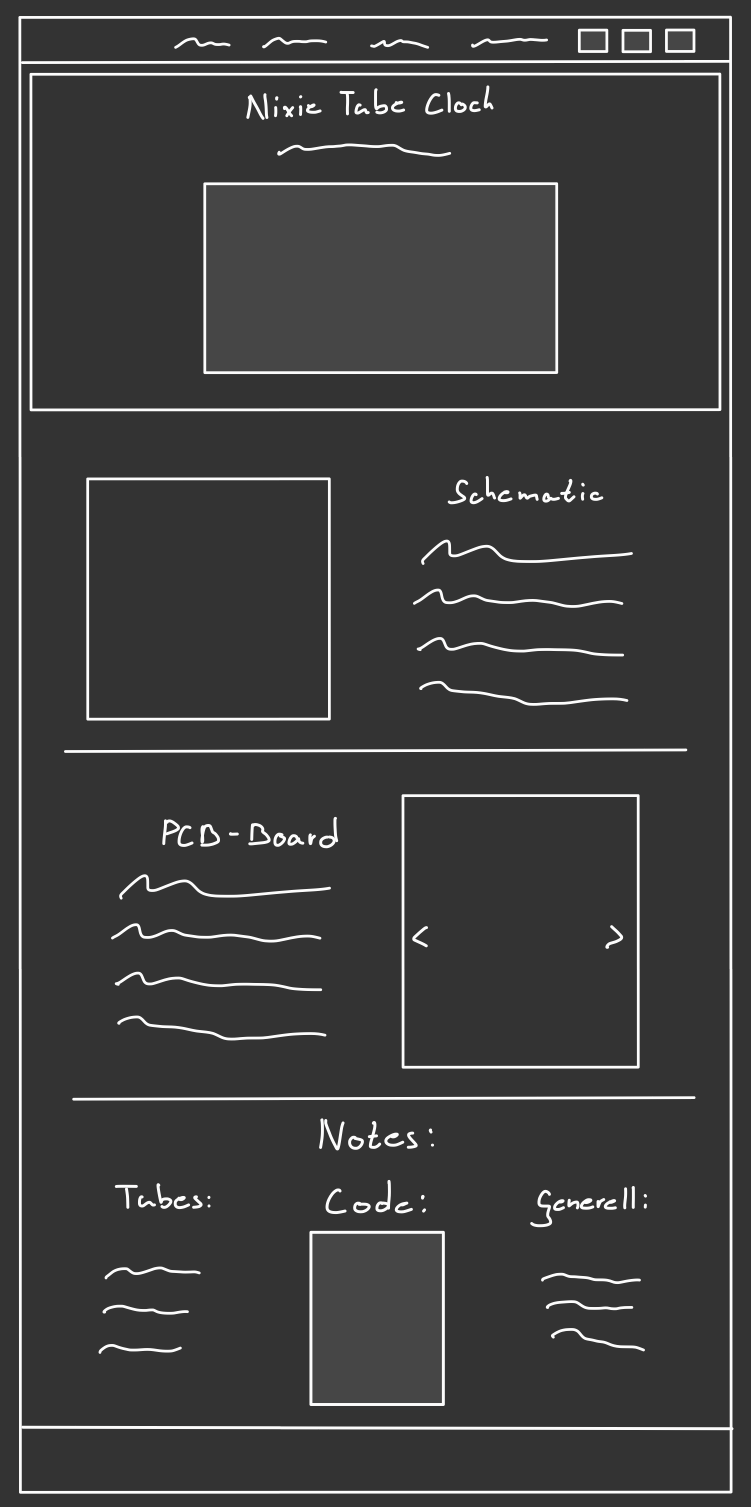 Nixie Tube Clock
Schematic
PCB-Board
<
>
Notes:
Tubes:
Code:
Generell: